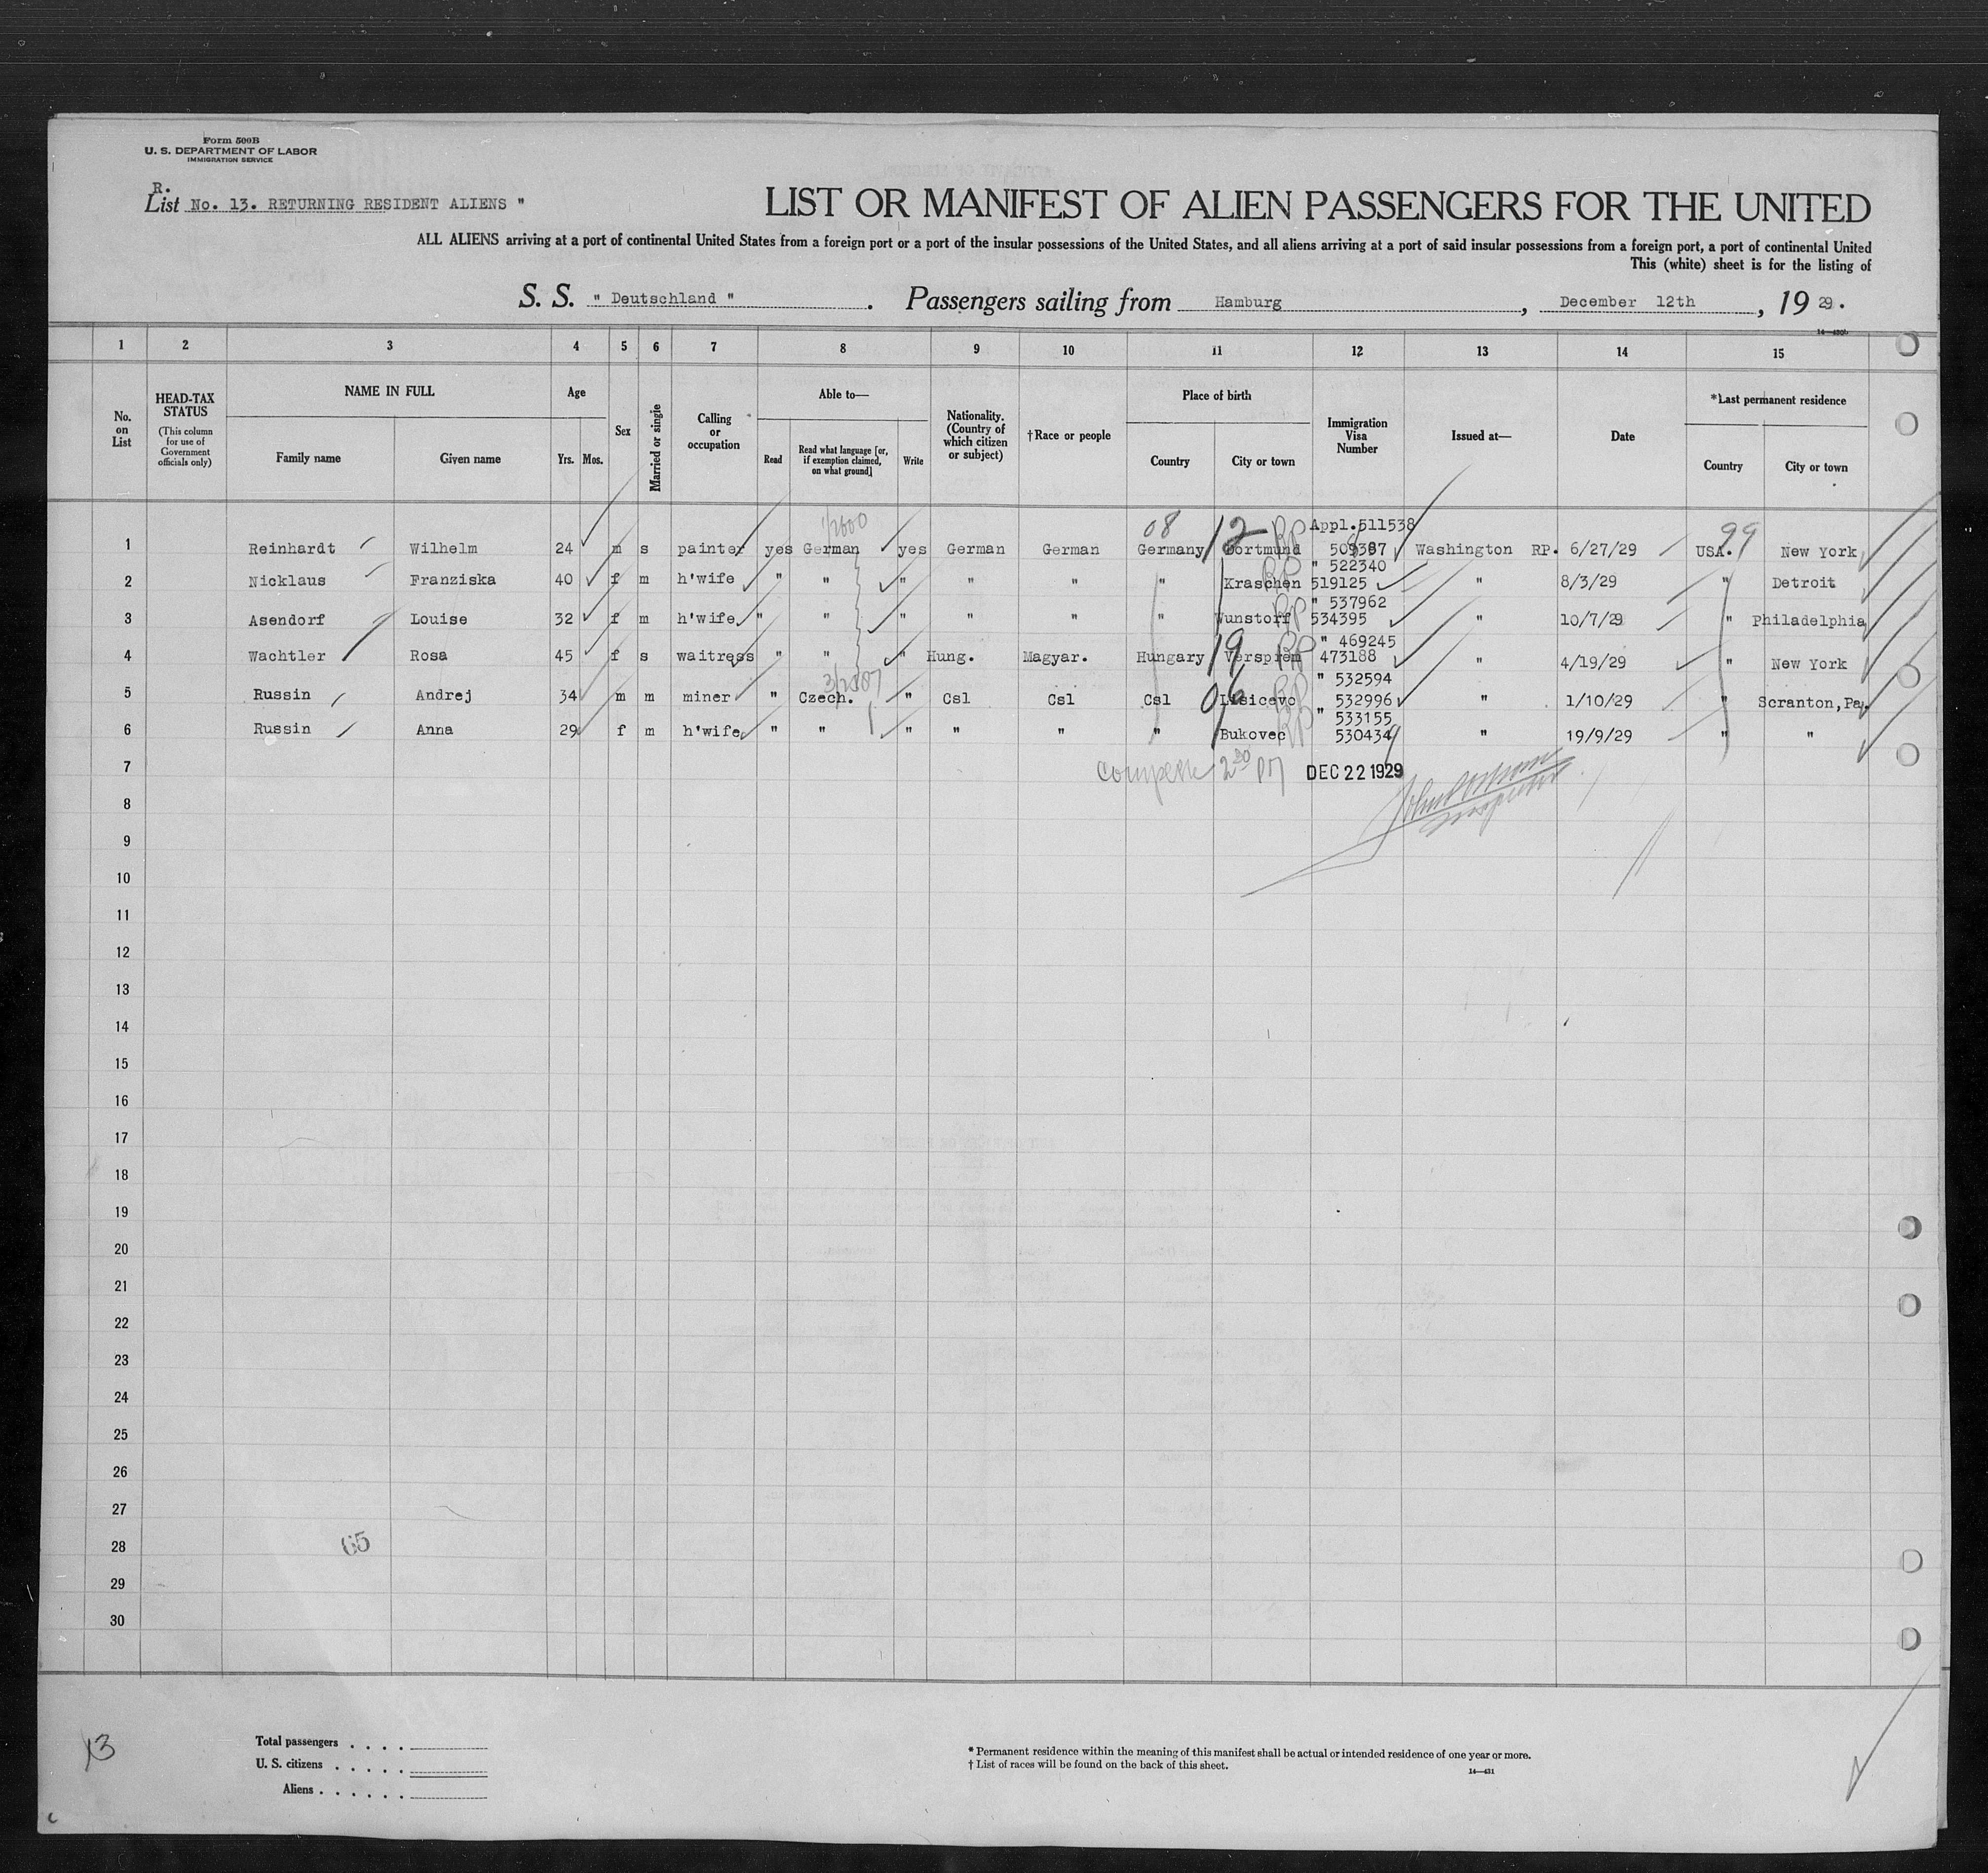 Form 500B
U. S. DEPARTMENT OF LABOR
IMMIGRATION SERVICE
R.
List No. 13. RETURNING RESIDENT ALIENS "
LIST OR MANIFEST OF ALIEN PASSENGERS FOR THE UNITED
ALL ALIENS arriving at a port of continental United States from a foreign port or a port of the insular possessions of the United States, and all aliens arriving at a port of said insular possessions from a foreign port, a port of continental United
This (white) sheet is for the listing of
S. S. " Deutschland " . Passengers sailing from Hamburg , December 12th , 19 29.
1 2 3 4 5 6 7 8 9 10 11 12 13 14 15
No. on List
HEAD-TAX STATUS
(This column for use of Government officials only)
NAME IN FULL
Family name
Given name
Age
Yrs. Mos.
Sex
Married or single
Calling or occupation
Able to—
Read
Read what language [or, if exemption claimed, on what ground]
Write
Nationality. (Country of which citizen or subject)
†Race or people
Place of birth
Country
City or town
Immigration Visa Number
Issued at—
Date
*Last permanent residence
Country
City or town
08 12 RP Appl.511538 99
1 Reinhardt Wilhelm 24 m s painter yes German yes German German Germany Dortmund Washington RP. 6/27/29 USA. New York
" 522340
2 Nicklaus Franziska 40 f m h'wife " " " " " " Kraschen 519125 " 8/3/29 " Detroit
" 537962
3 Asendorf Louise 32 f m h'wife " " " " " " Wunstorf 534395 " 10/7/29 " Philadelphia
19 RP " 469245
4 Wachtler Rosa 45 f s waitress " " " Hung. Magyar. Hungary Versprem 473188 " 4/19/29 " New York
06 RP " 532594
5 Russin Andrej 34 m m miner " Czech. " Csl Csl Csl 532996 " 1/10/29 " Scranton, Pa.
" 533155
6 Russin Anna 29 f m h'wife " " " " " " Bukovec 530434 " 19/9/29 " "
7 DEC 22 1929
8
9
10
11
12
13
14
15
16
17
18
19
20
21
22
23
24
25
26
27
28
65
29
30
13
Total passengers . . . .
U. S. citizens . . . . .
Aliens . . . . . .
* Permanent residence within the meaning of this manifest shall be actual or intended residence of one year or more.
† List of races will be found on the back of this sheet.
14—431